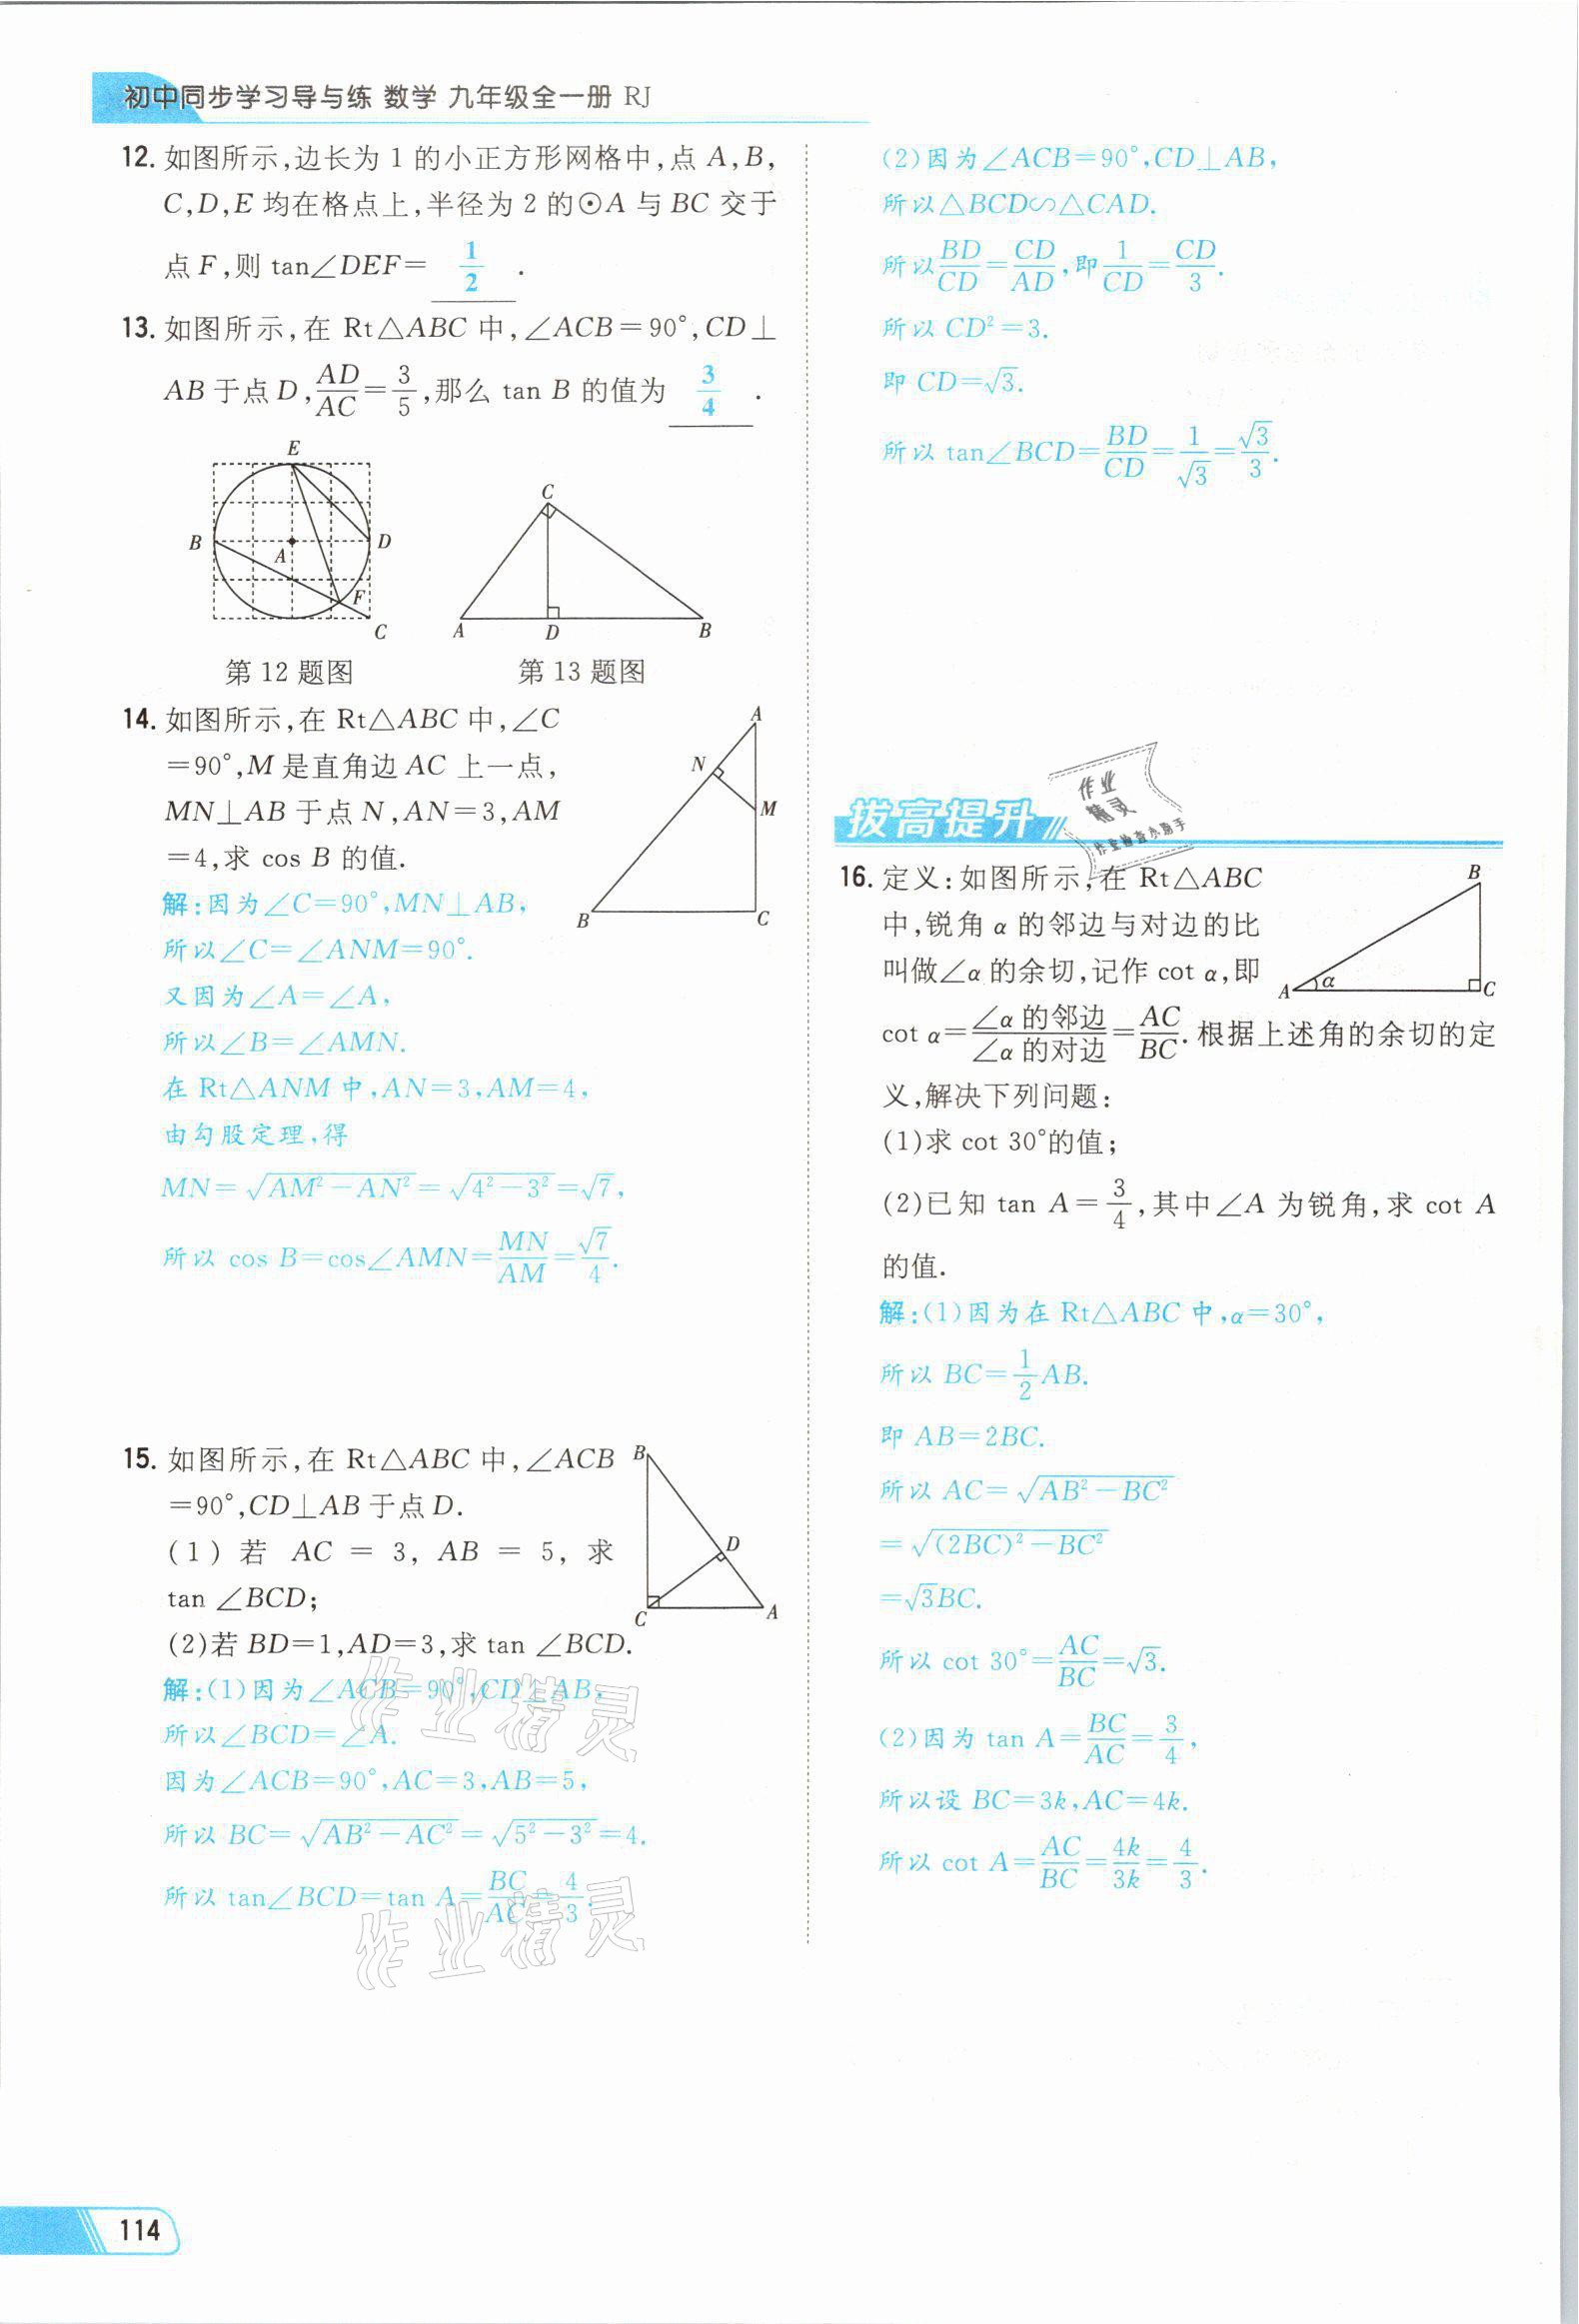 初中同步学习导与练 数学 九年级全一册 RJ
12. 如图所示,边长为 1 的小正方形网格中,点 A,B,
C,D,E 均在格点上,半径为 2 的⊙A 与 BC 交于
点 F,则 tan∠DEF= 1/2 .
13. 如图所示,在 Rt△ABC 中,∠ACB=90°,CD⊥
AB 于点 D,AD/AC=3/5,那么 tan B 的值为 3/4 .
E
B
A
D
F
C
C
A
D
B
第 12 题图
第 13 题图
14. 如图所示,在 Rt△ABC 中,∠C
=90°,M 是直角边 AC 上一点,
MN⊥AB 于点 N,AN=3,AM
=4,求 cos B 的值.
A
N
M
B
C
解:因为∠C=90°,MN⊥AB,
所以∠C=∠ANM=90°.
又因为∠A=∠A,
所以∠B=∠AMN.
在 Rt△ANM 中,AN=3,AM=4,
由勾股定理,得
MN=√(AM²-AN²)=√(4²-3²)=√7,
所以 cos B=cos∠AMN=MN/AM=√7/4.
15. 如图所示,在 Rt△ABC 中,∠ACB
=90°,CD⊥AB 于点 D.
(1)若 AC = 3, AB = 5, 求
tan ∠BCD;
(2)若 BD=1,AD=3,求 tan ∠BCD.
B
D
C
A
解:(1)因为∠ACB=90°,CD⊥AB,
所以∠BCD=∠A.
因为∠ACB=90°,AC=3,AB=5,
所以 BC=√(AB²-AC²)=√(5²-3²)=4.
所以 tan∠BCD=tan A=BC/AC=4/3.
作业精灵
作业精灵
114
(2)因为∠ACB=90°,CD⊥AB,
所以△BCD∽△CAD.
所以BD/CD=CD/AD,即1/CD=CD/3.
所以 CD²=3.
即 CD=√3.
所以 tan∠BCD=BD/CD=1/√3=√3/3.
拔高提升
作业
精灵
作业检查小助手
16. 定义:如图所示,在 Rt△ABC
中,锐角 α 的邻边与对边的比
叫做∠α的余切,记作 cot α,即
cot α=∠α的邻边/∠α的对边=AC/BC.根据上述角的余切的定
义,解决下列问题:
(1)求 cot 30°的值;
(2)已知 tan A=3/4,其中∠A 为锐角,求 cot A
的值.
B
A
α
C
解:(1)因为在 Rt△ABC 中,α=30°,
所以 BC=1/2AB.
即 AB=2BC.
所以 AC=√(AB²-BC²)
=√((2BC)²-BC²)
=√3BC.
所以 cot 30°=AC/BC=√3.
(2)因为 tan A=BC/AC=3/4,
所以设 BC=3k,AC=4k.
所以 cot A=AC/BC=4k/3k=4/3.